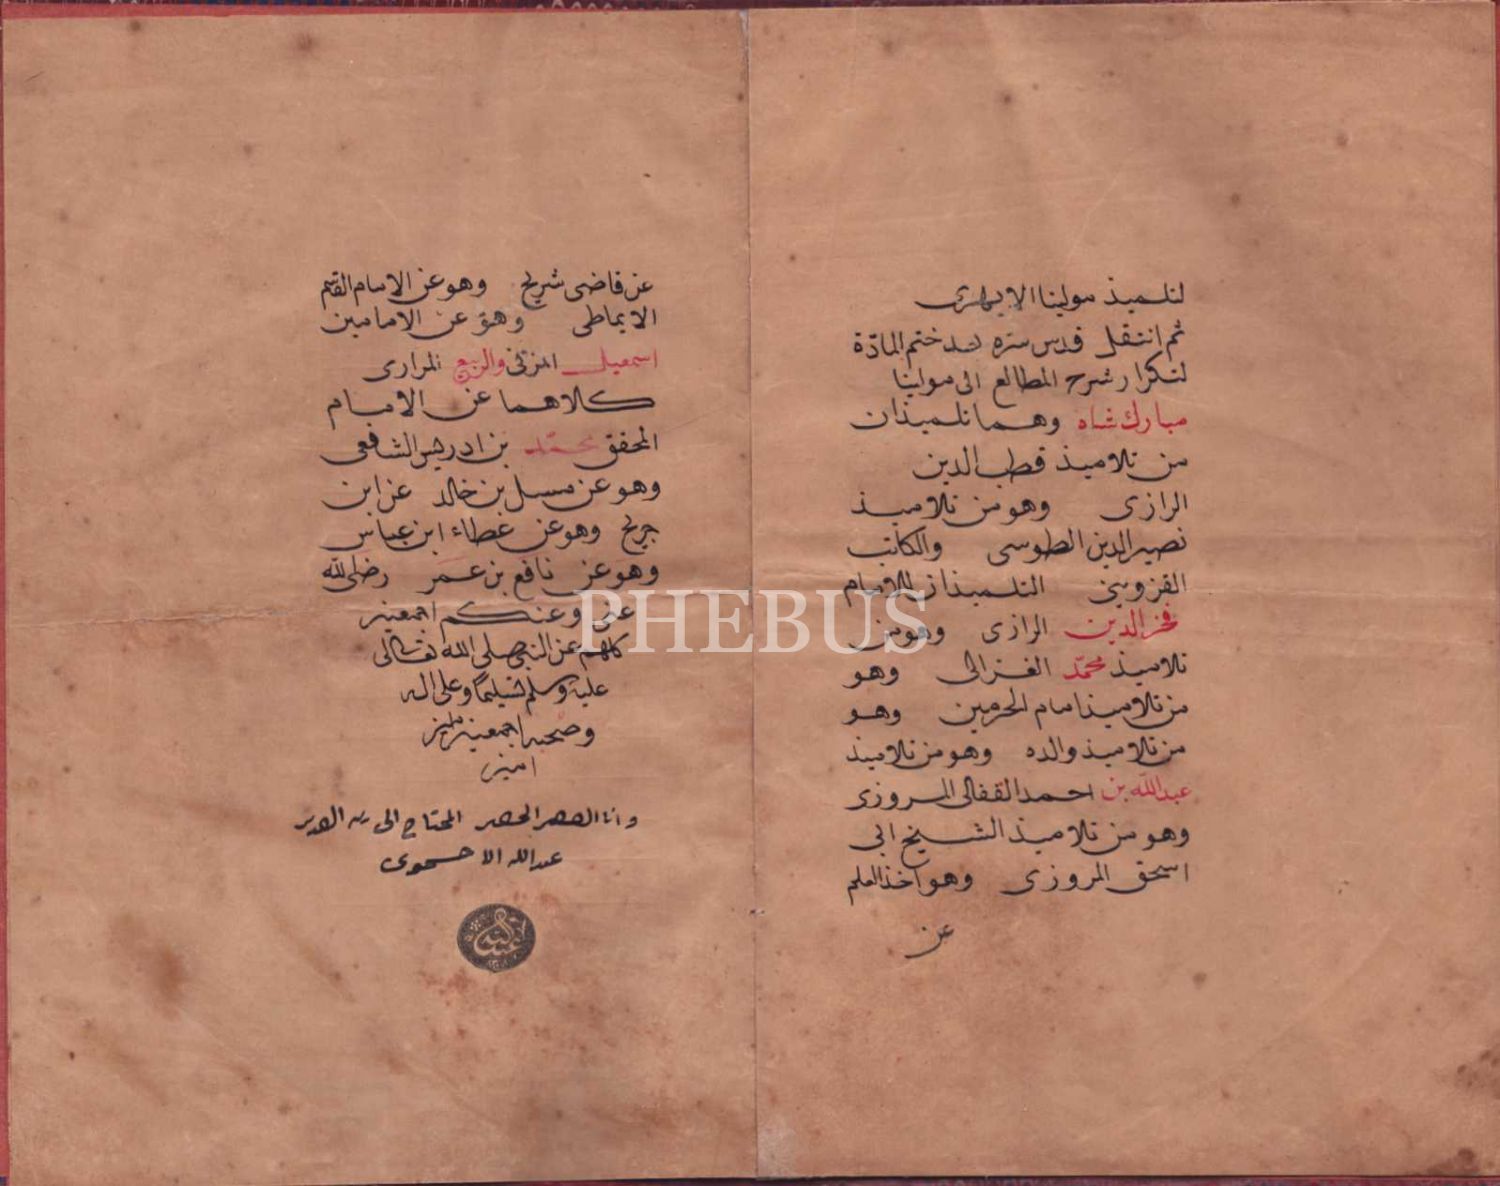 لتلميذ مولينا الابهرى
ثم انتقل قدس سره بعد ختم المادّة
لتكرار شرح المطالع الى مولينا
مبارك شاه وهما تلميذان
من تلاميذ قطب الدين
الرازى وهو من تلاميذ
نصير الدين الطوسى والكاتب
القزوينى التلميذان للامام
فخر الدين الرازى وهو من
تلاميذ محمّد الغزالى وهو
من تلاميذ امام الحرمين وهو
من تلاميذ والده وهو من تلاميذ
عبد الله بن احمد القفالى المروزى
وهو من تلاميذ الشيخ ابى
اسحق المروزى وهو اخذ العلم
عن
عن قاضى شريح وهو عن الامام القسم
الايماطى وهو عن الامامين
اسمعيل المزنى والربيع المرارى
كلاهما عن الامام
المحقق محمّد بن ادريس الشافعى
وهو عن مسلم بن خالد عن ابن
جريح وهو عن عطاء ابن عباس
وهو عن نافع بن عمر رضى الله
عنى وعنكم اجمعين
كلهم عن النبى صلى الله تعالى
عليه وسلم تسليمًا وعلى اله
وصحبه اجمعين
امين
وانا الحقير المحتاج الى ربه القدير
عبد الله
PHEBUS